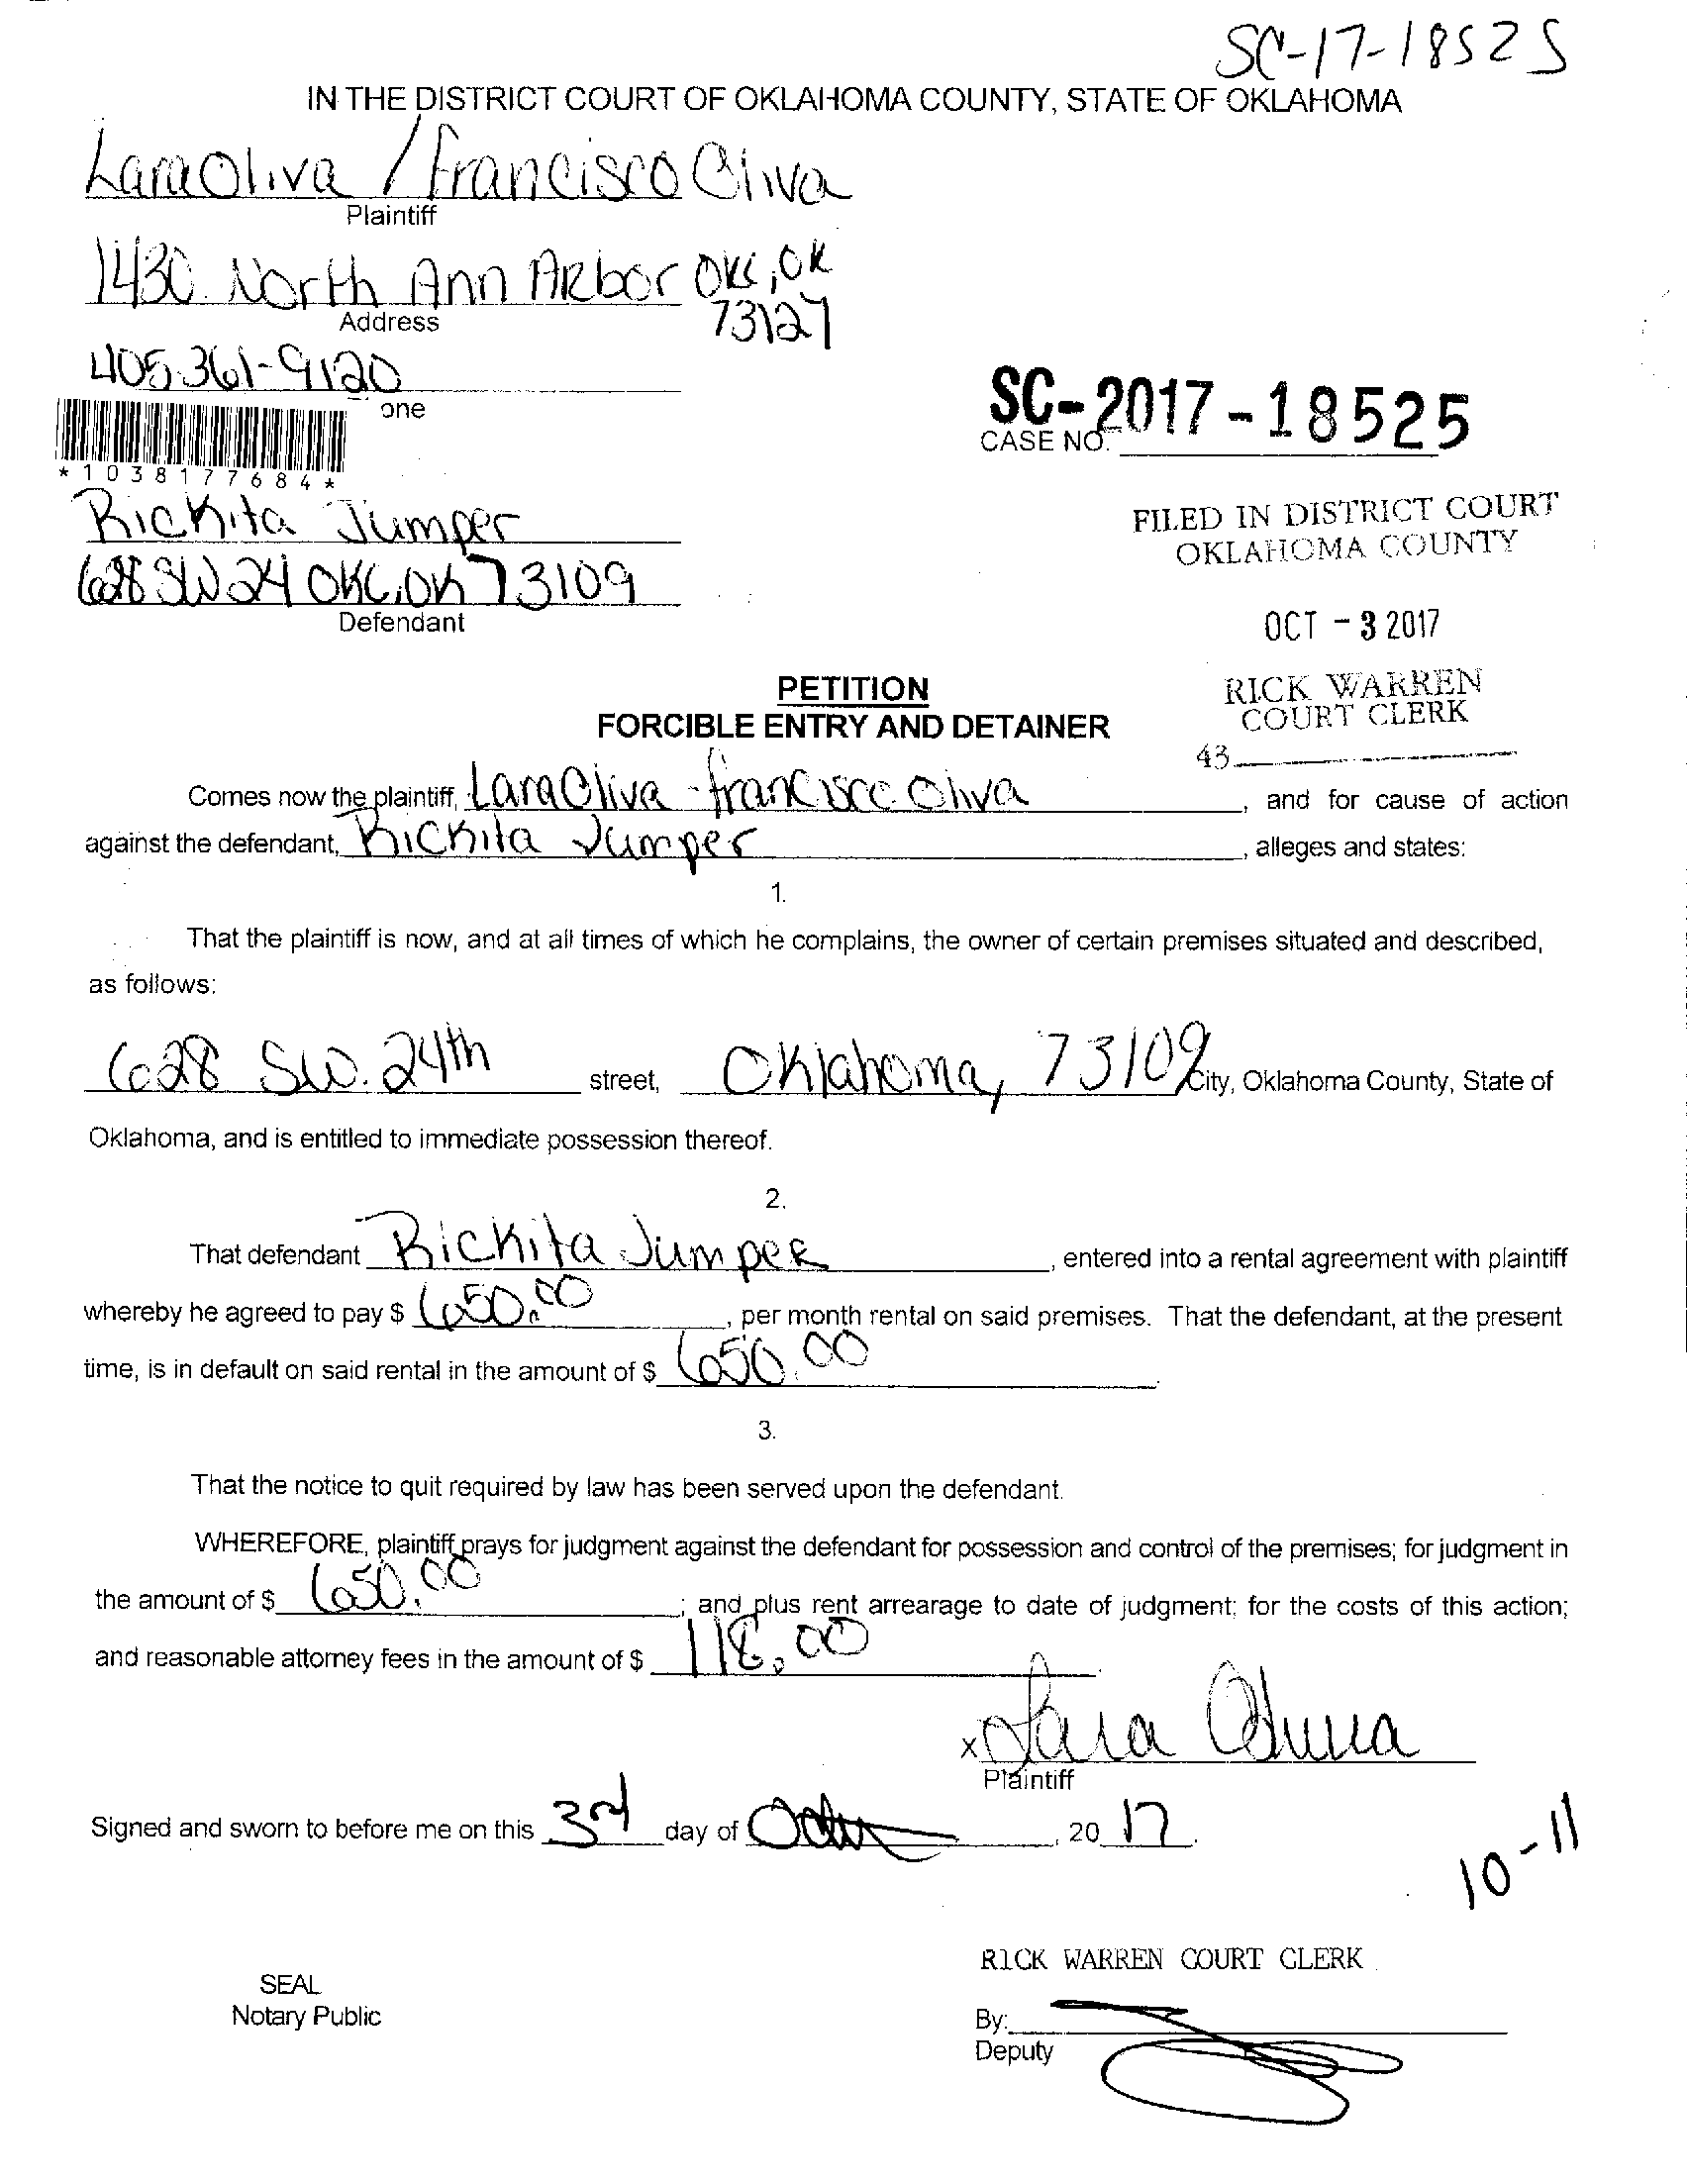 SC-17-18525
IN THE DISTRICT COURT OF OKLAHOMA COUNTY, STATE OF OKLAHOMA
Lara Oliva / Francisco Oliva
Plaintiff
1430 North Ann Arbor OKC, OK
73127
Address
405-361-9120
one
SC-2017-18525
CASE NO.
*1038177684*
Rickita Jumper
628 SW 24 OKC, OK 73109
Defendant
FILED IN DISTRICT COURT
OKLAHOMA COUNTY
OCT - 3 2017
RICK WARREN
COURT CLERK
43
PETITION
FORCIBLE ENTRY AND DETAINER
Comes now the plaintiff, Lara Oliva - Francisco Oliva, and for cause of action
against the defendant, Rickita Jumper, alleges and states:
1.
That the plaintiff is now, and at all times of which he complains, the owner of certain premises situated and described,
as follows:
628 SW. 24th street, Oklahoma, 73109 City, Oklahoma County, State of
Oklahoma, and is entitled to immediate possession thereof.
2.
That defendant Rickita Jumper, entered into a rental agreement with plaintiff
whereby he agreed to pay $ 650.00, per month rental on said premises. That the defendant, at the present
time, is in default on said rental in the amount of $ 650.00.
3.
That the notice to quit required by law has been served upon the defendant.
WHEREFORE, plaintiff prays for judgment against the defendant for possession and control of the premises; for judgment in
the amount of $ 650.00; and plus rent arrearage to date of judgment; for the costs of this action;
and reasonable attorney fees in the amount of $ 118.00.
x Lara Oliva
Plaintiff
Signed and sworn to before me on this 3rd day of , 20 17.
10-11
RICK WARREN COURT CLERK
SEAL
Notary Public
By:
Deputy